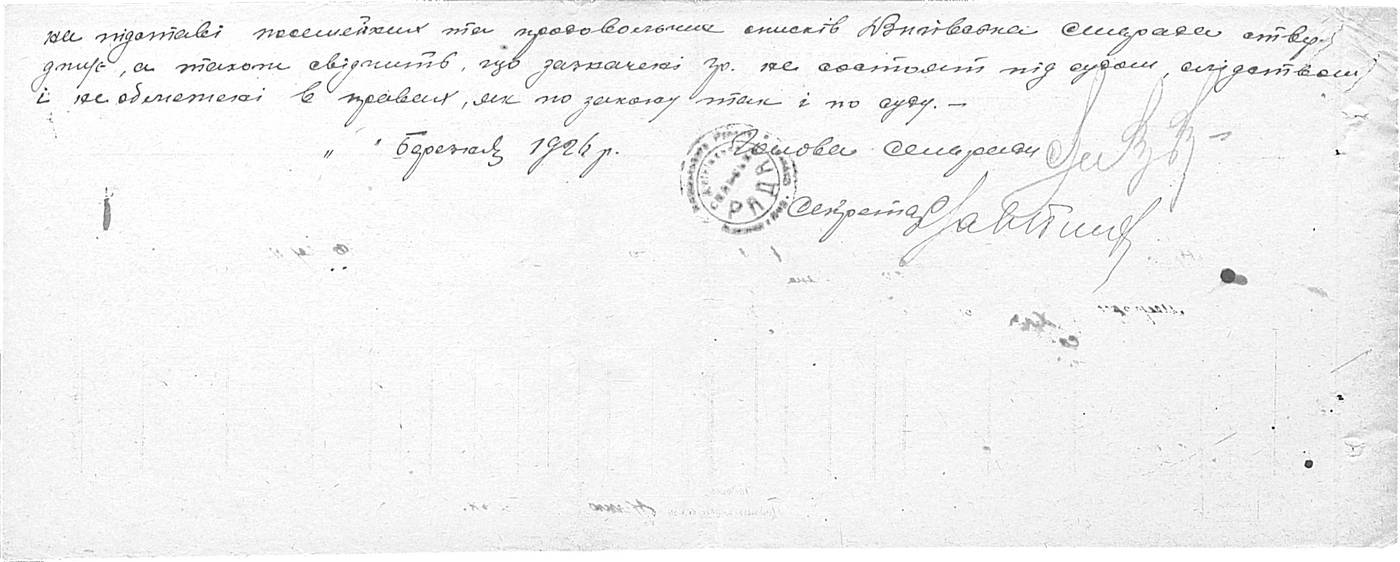 на підставі посемейних та продовольчих списків сільрада стверд
джує, а також свідчить, що зазначені гр. не состоят під судом, слідством
і не обмежені в правах, як по закону так і по суду. —
„ " Березня 1926 р. Голова сільради
РАДА
Секретар